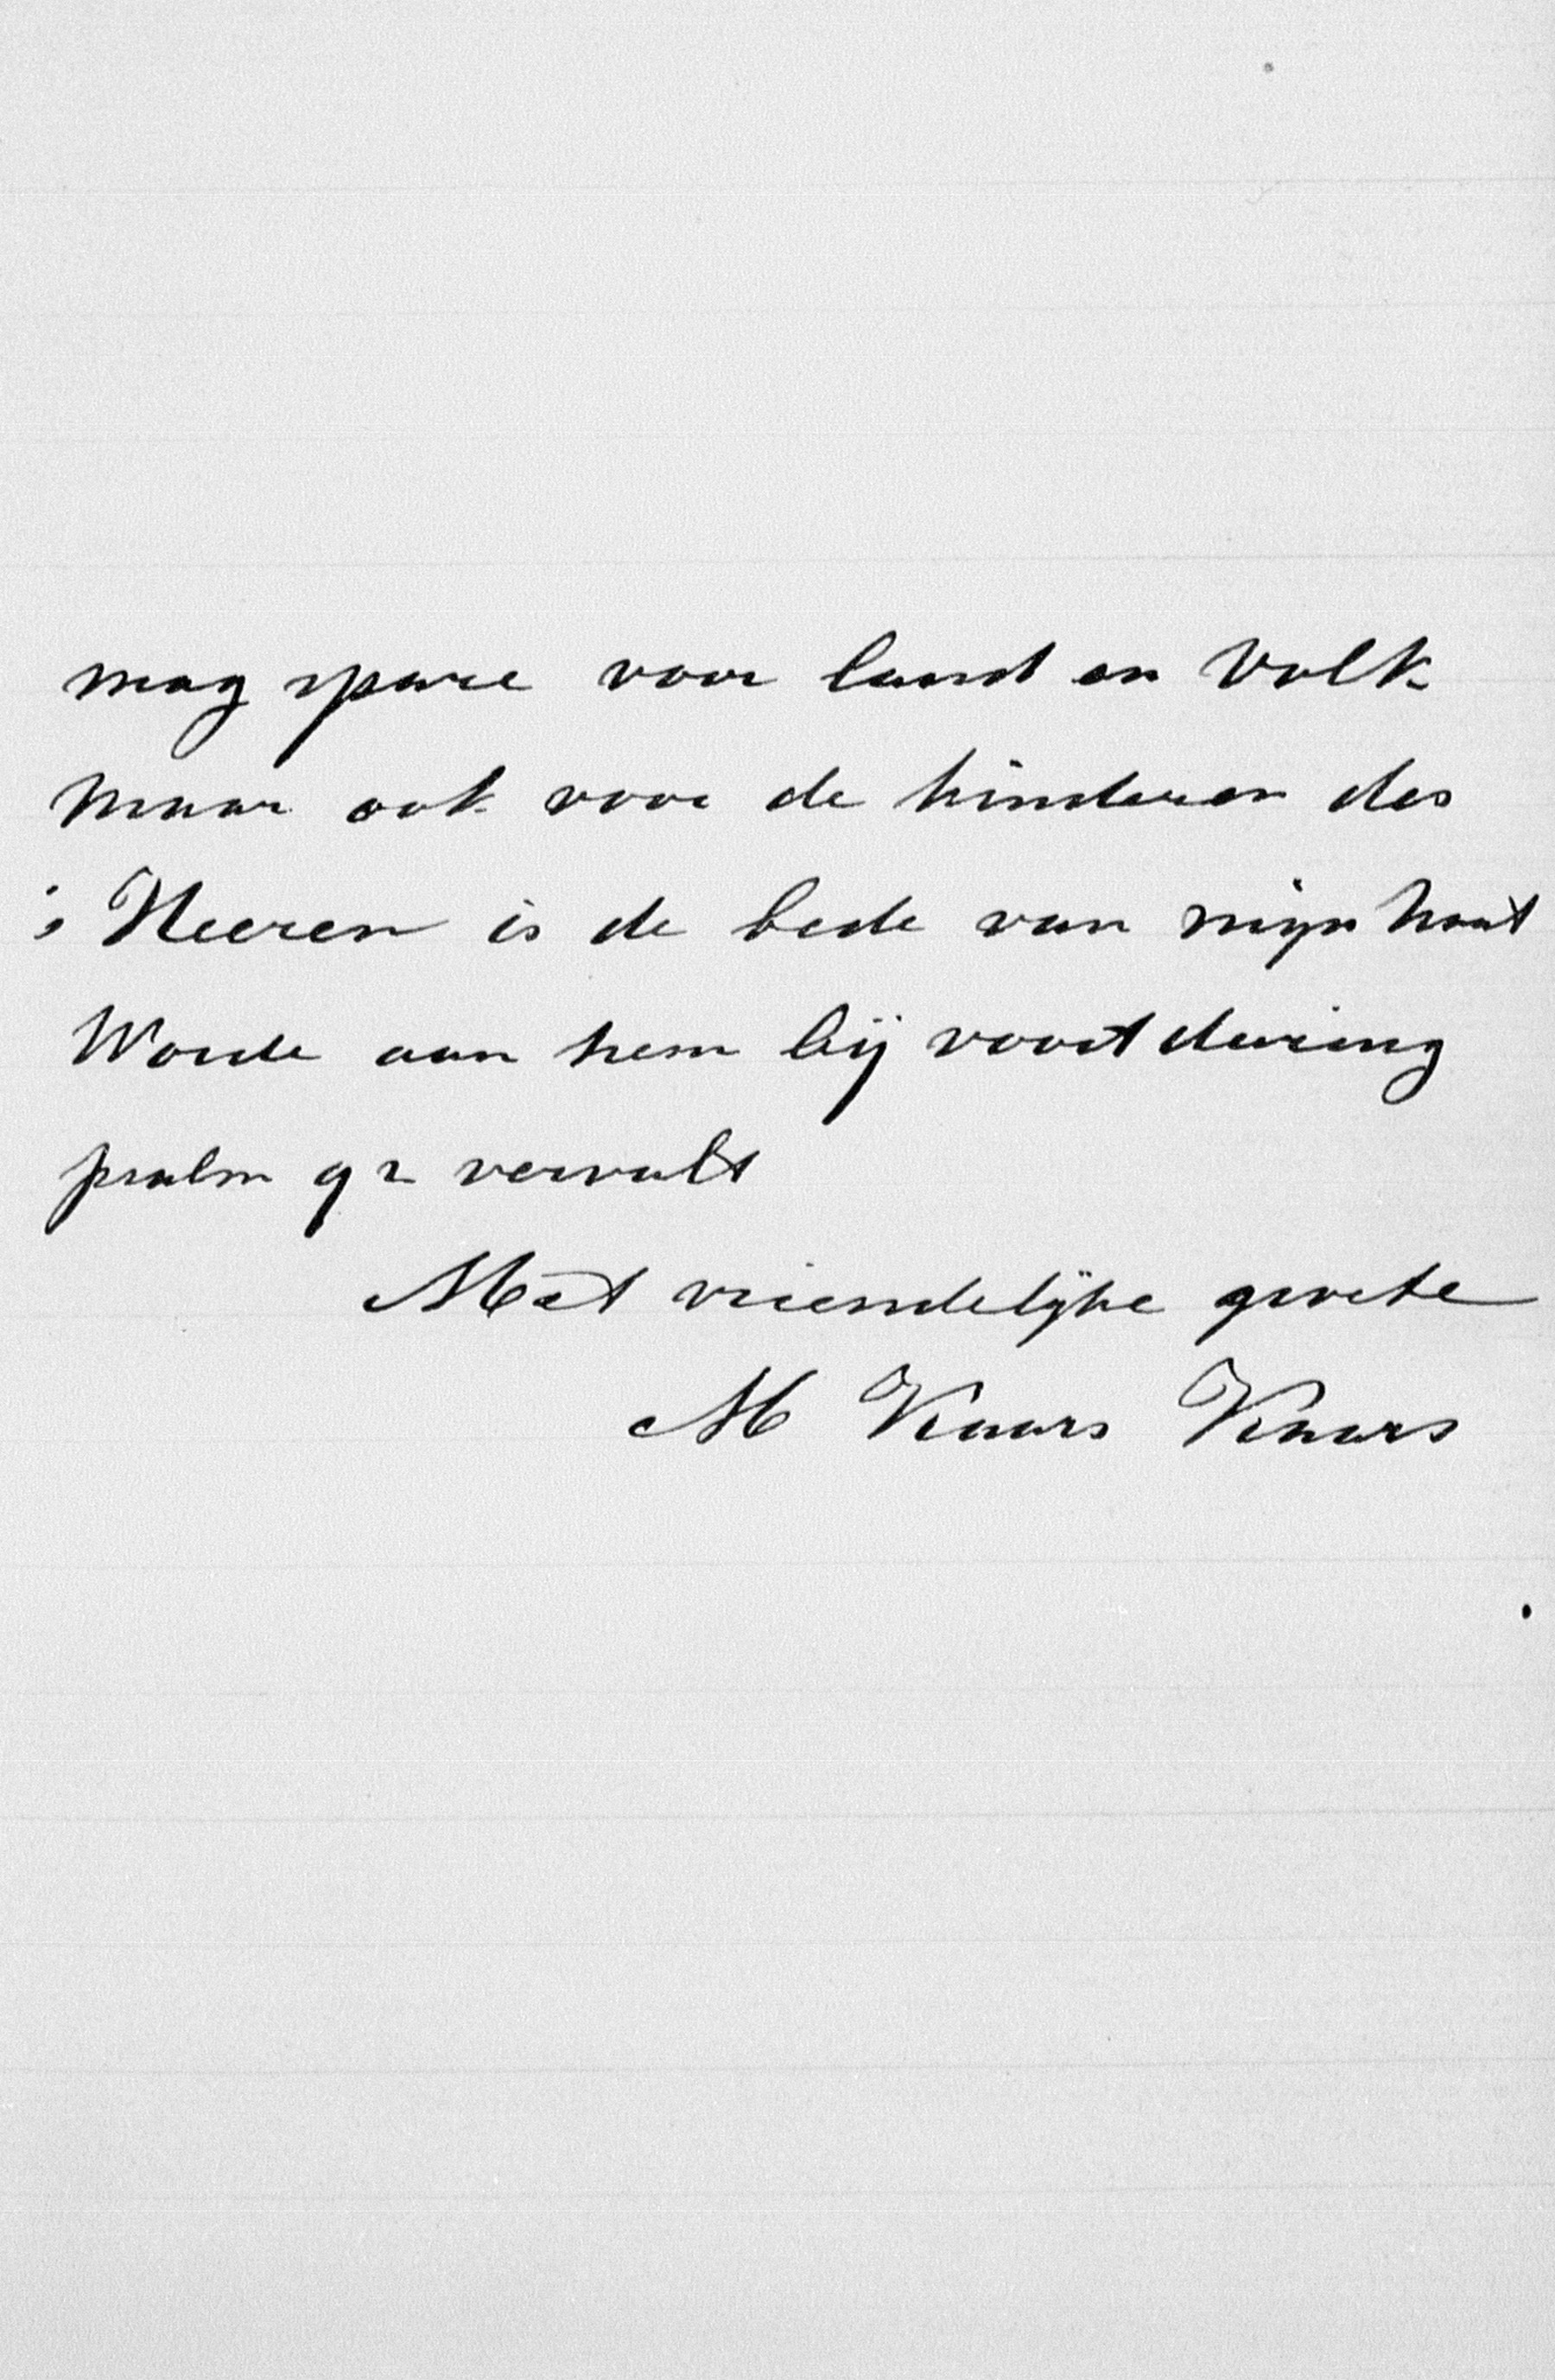 mag spare voor land en Volk
Maar ook voor de kinderen des
's Heeren is de bede van mijn hart
Worde aan hem bij voortduring
psalm 92 vervult
Met vriendelijke groete
M Kaars Kaars